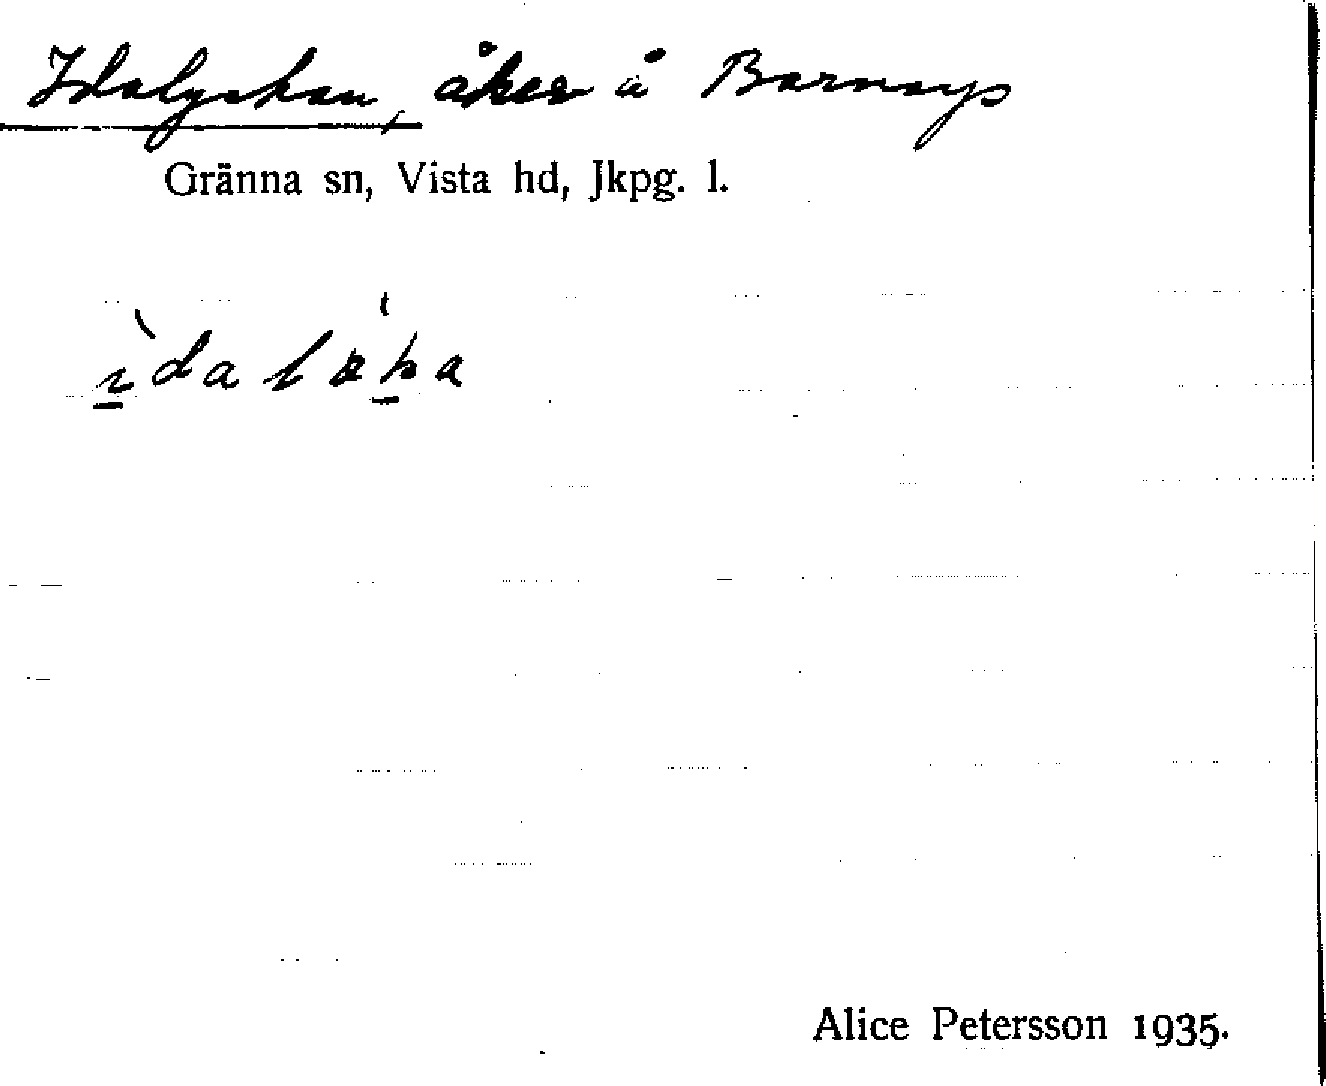 Idalyckan, åker å Barnarp
Gränna sn, Vista hd, Jkpg. l.
Alice Petersson 1935.